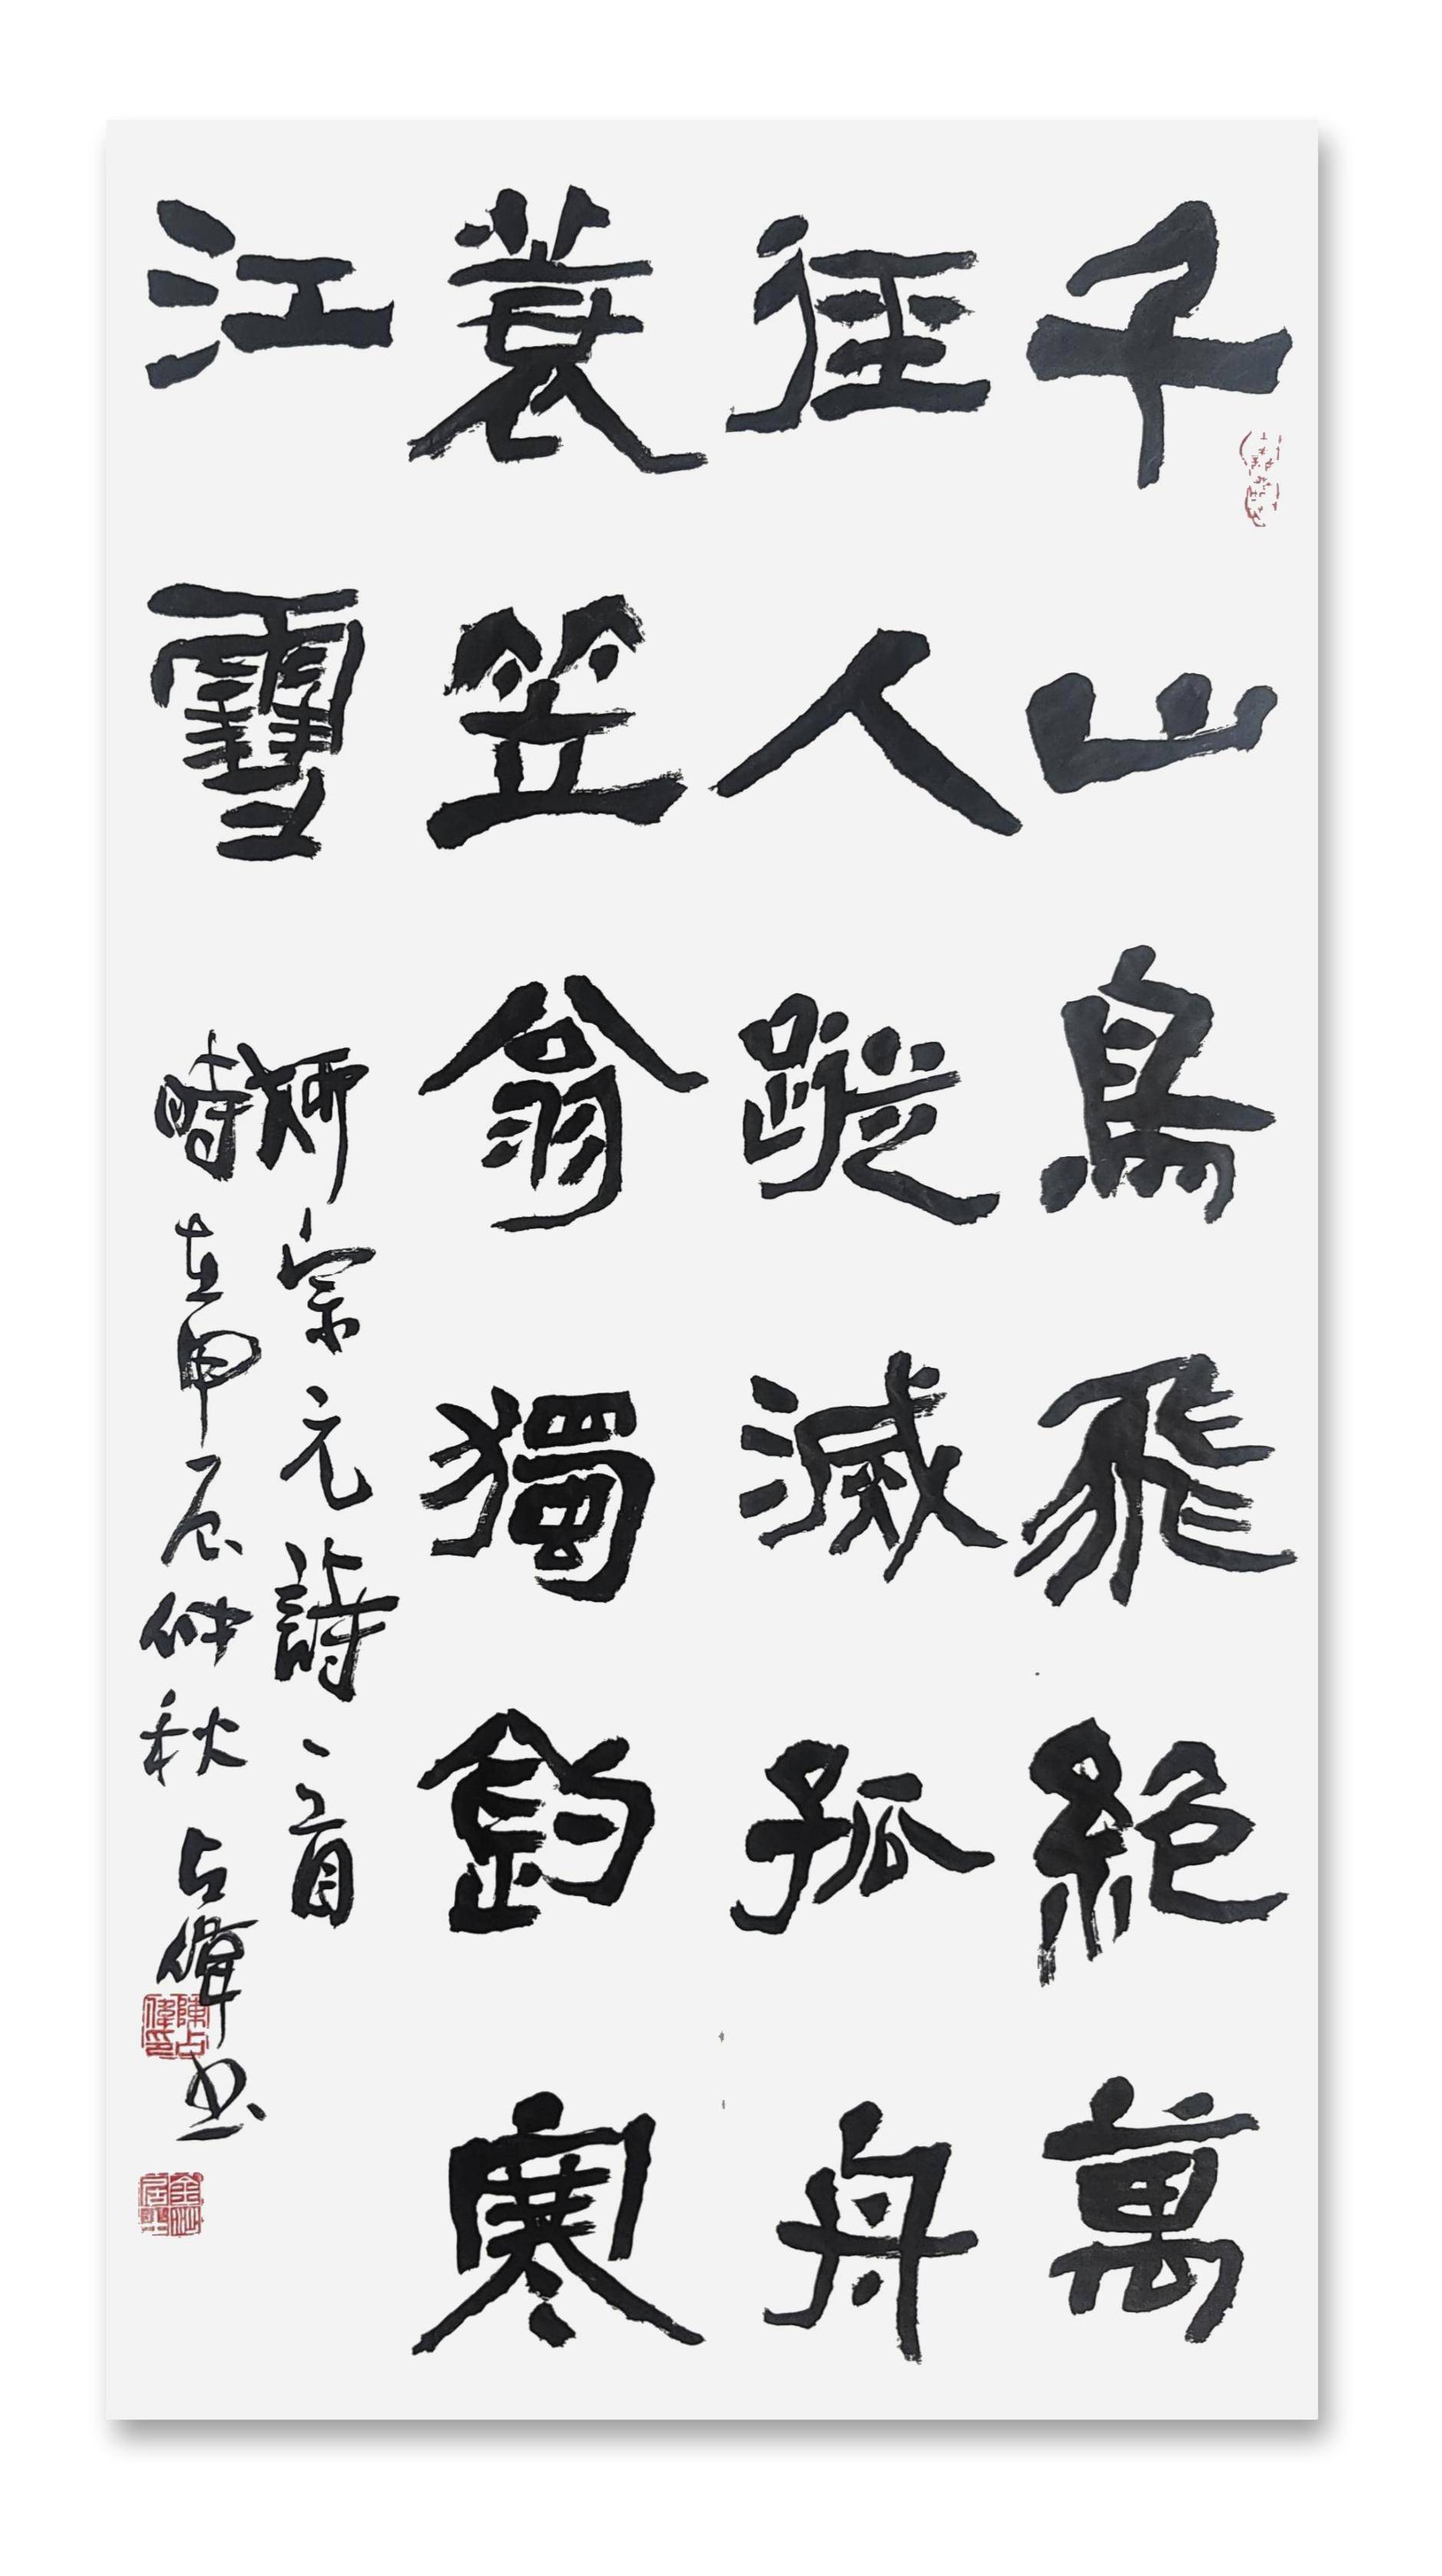 千山鳥飛絶萬
徑人蹤滅孤舟
蓑笠翁獨釣寒
江雪
柳宗元詩一首
時在甲辰仲秋占偉书
陳占偉印